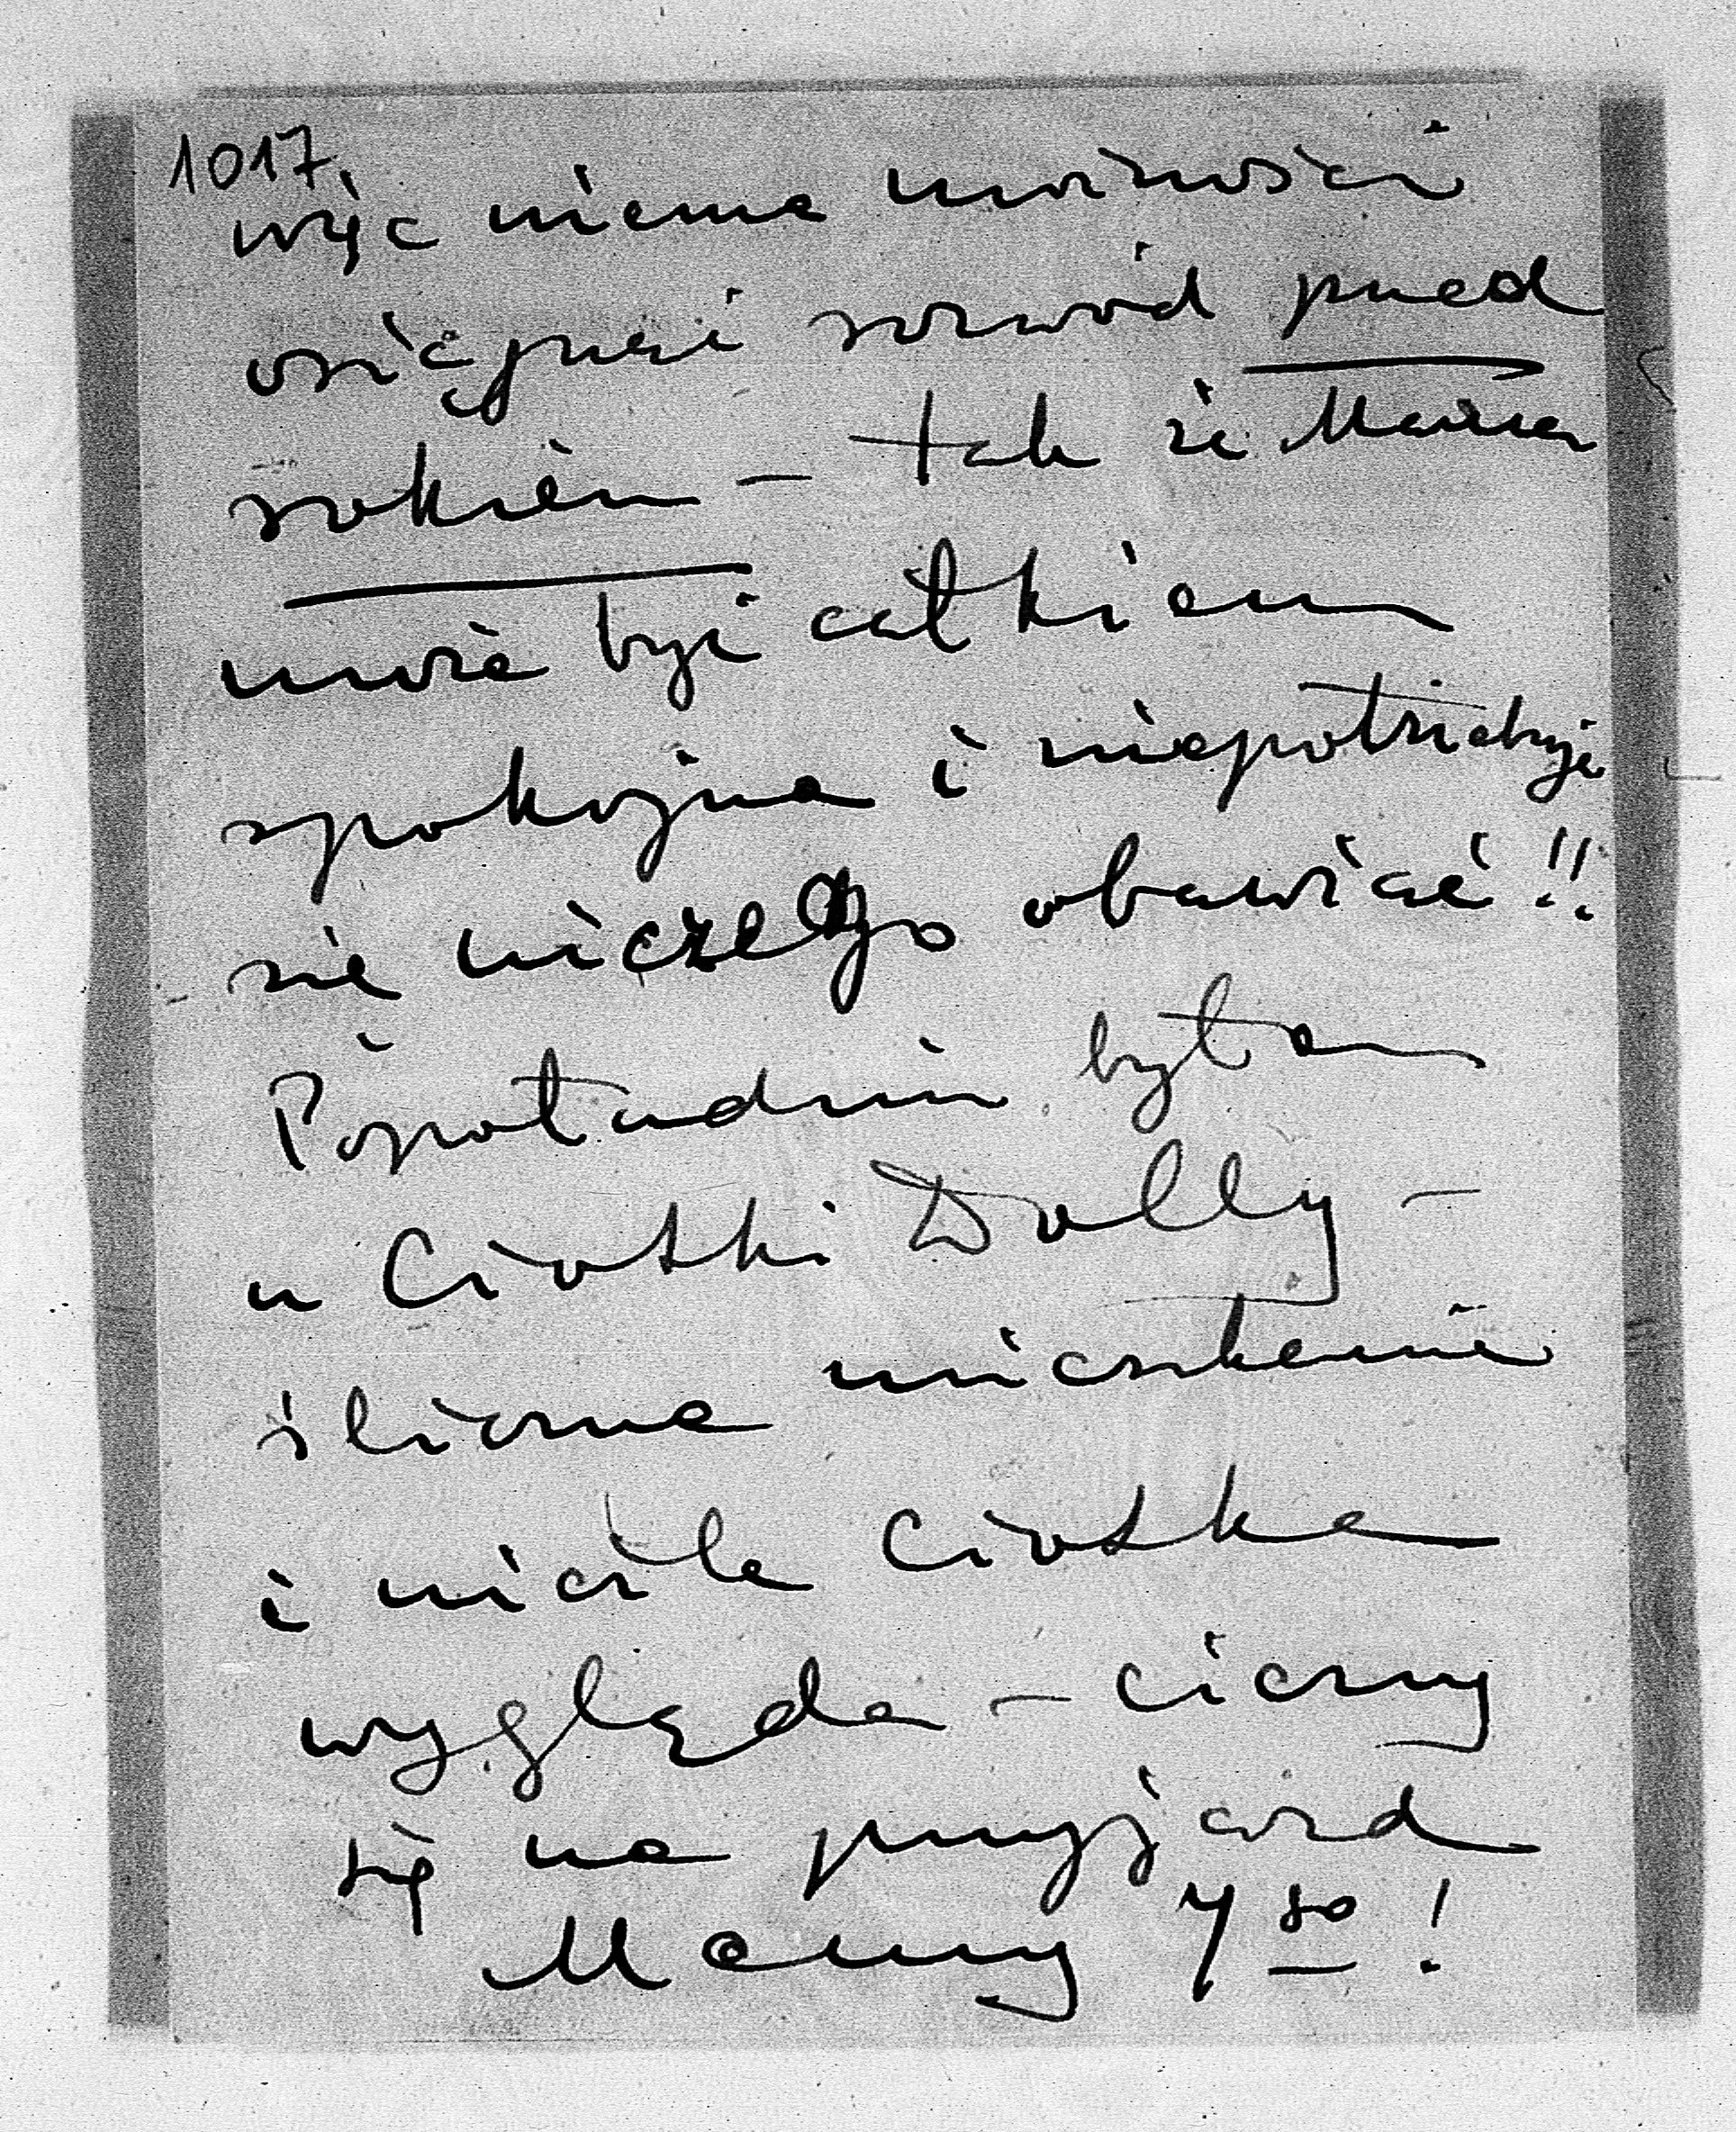 1017.
więc niema możności
osiągnąć rozwód przed
rokiem – tak że Mama
może być całkiem
spokojna i niepotrzebuje
się niczego obawiać!!
Popołudniu byłam
u Ciotki Dolly –
śliczne mieszkanie
i nieźle Ciotka
wygląda – cieszy
się na przyjazd
Mamy 7go!